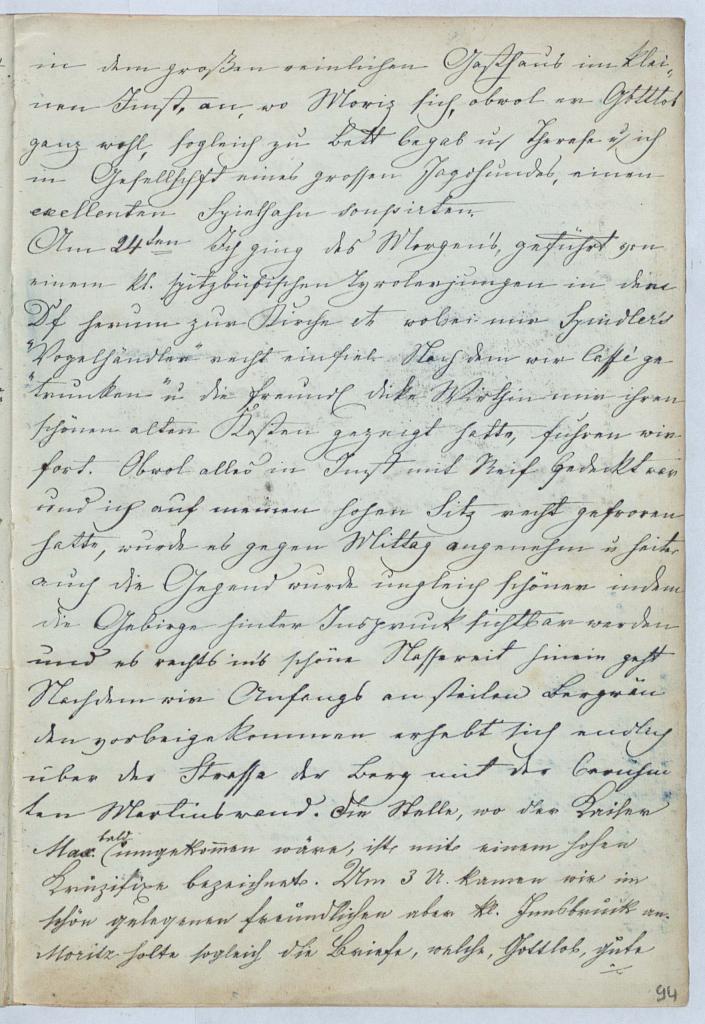 in dem großen reinlichen Gasthaus im klei-
nen Imst, an, wo Moriz sich, obwol er Gottlob
ganz wohl, sogleich zu Bett begab u Therese u ich
in Gesellschft eines grossen Jagdhundes, einen
excellenten Spielhahn soupirten.
Am 24ten Ich ging des Morgen's, geführt von
einem kl. spitzbübischen Tyrolerjungen in dem
Df herum zur Kirche etc wobei mir Spindlers
"Vogelhändler" recht einfiel. Nachdem wir Caffé ge
"trunken" u die freundl dicke Wirthin mir ihren
schönen alten Kasten gezeigt hatte, fuhren wir
fort. Obwol alles in Imst mit Reif gedeckt war
und ich auf meinen hohen Sitz recht gefroren
hatte, wurde es gegen Mittag angenehm u heiter
auch die Gegend wurde ungleich schöner indem
die Gebirge hinter Inspruck sichtbar werden
und es rechts in's schöne Nassereit hinein geht
Nachdem wir Anfangs an steilen Bergwän
den vorbeigekommen erhebt sich endlich
über der Strasse der Berg mit der berühm
ten Martinswand. Die Stelle, wo der Kaiser
Max. bald umgekom̄en wäre, ist mit einem hohen
Kruzifixe bezeichnet. Um 3 U. kamen wir im
schön gelegenen freundlichen aber kl. Innsbruck an.
Moritz holte sogleich die Briefe, welche, Gottlob, gute
94